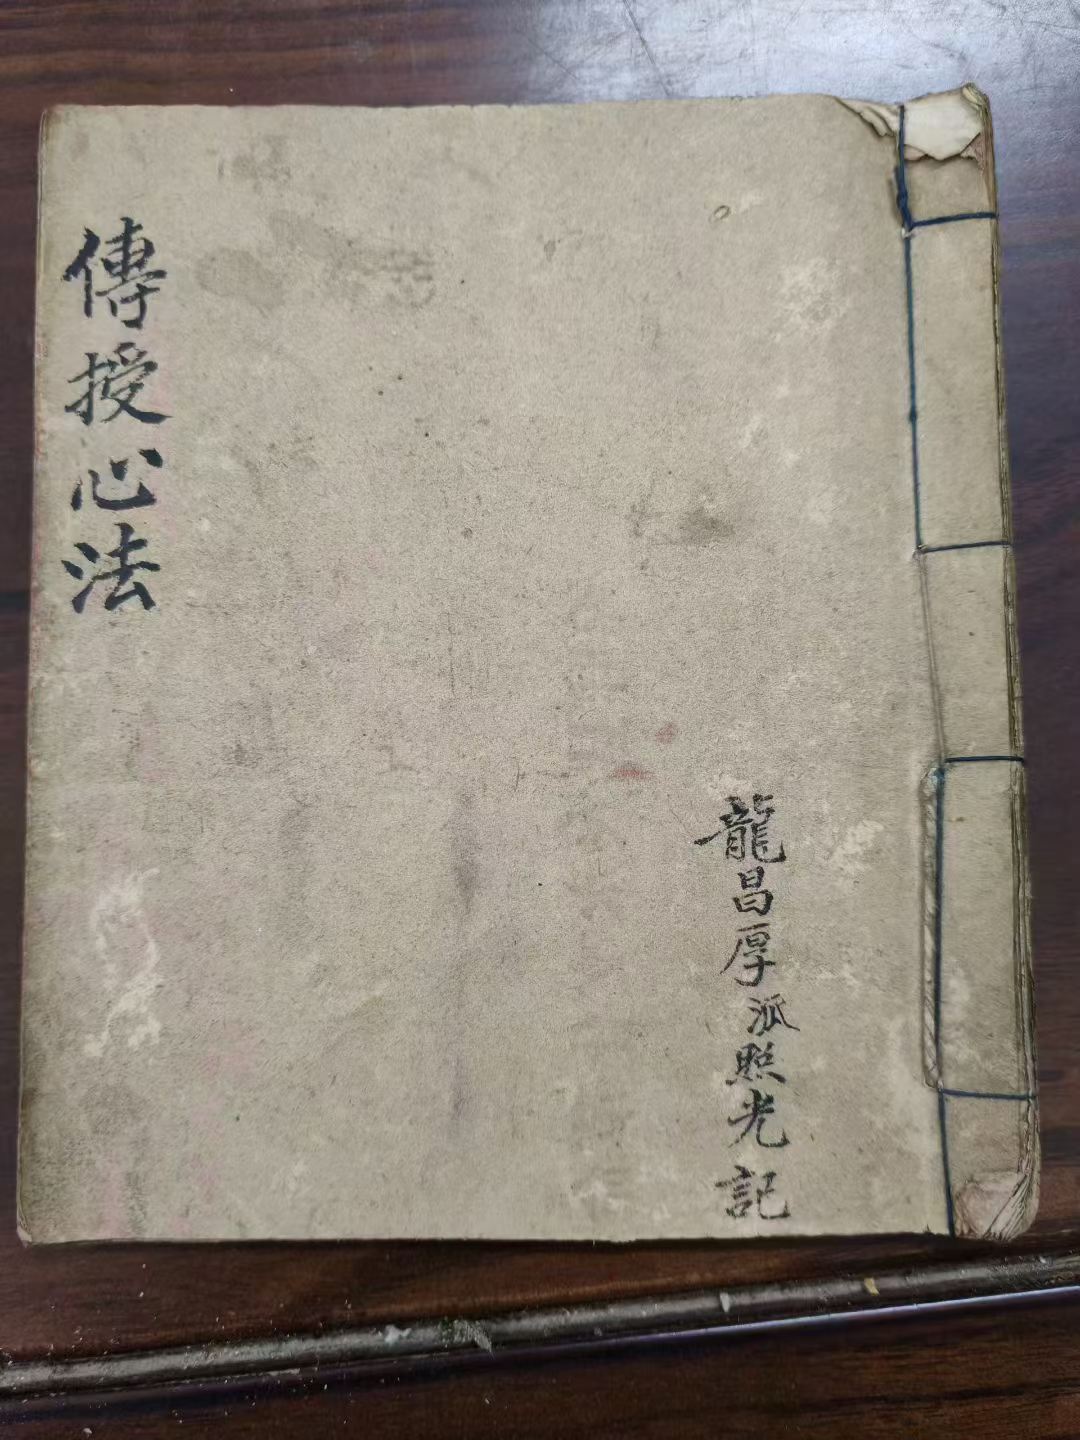 傳授心法
龍昌厚派照光記